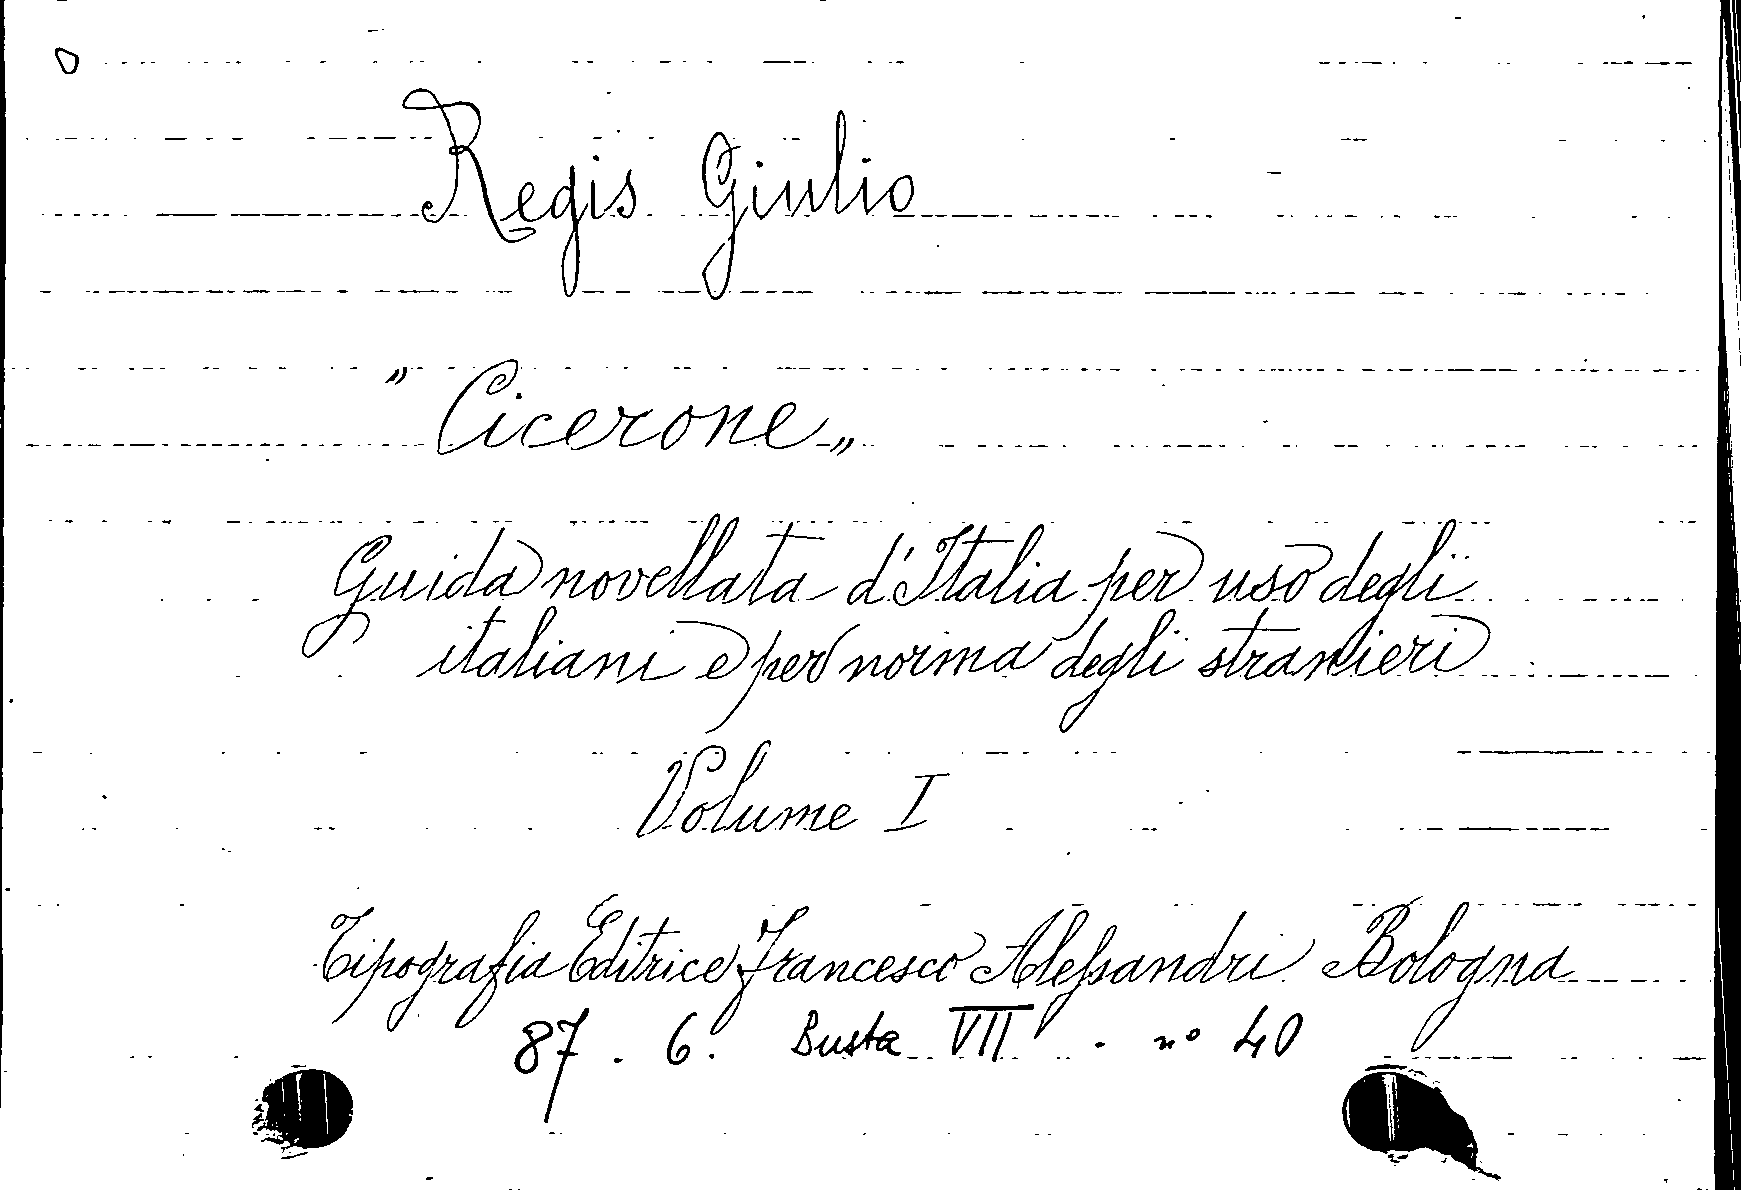 Regis Giulio
"Cicerone„
Guida novellata d'Italia per uso degli
italiani e per norma degli stranieri
Volume I
Tipografia Editrice Francesco Alessandri Bologna
87. 6. Busta VII. nº 40